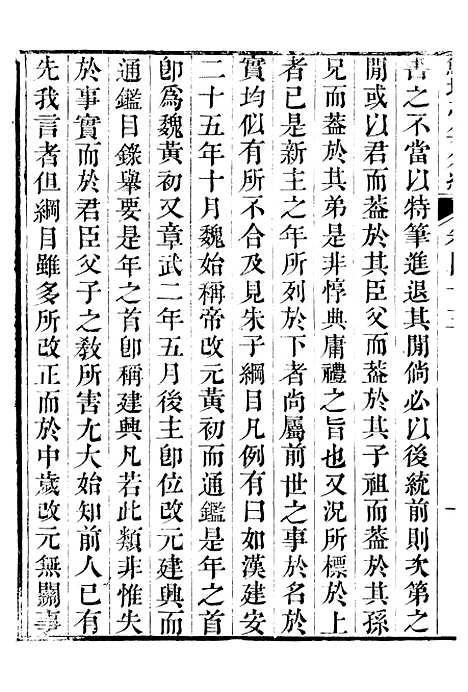 書之不當以特筆進退其閒倘必以後統前則次第之
閒或以君而蓋於其臣父而蓋於其子祖而蓋於其孫
兄而蓋於其弟是非惇典庸禮之旨也又況所標於上
者已是新主之年所列於下者尚屬前世之事於名於
實均似有所不合及見朱子綱目凡例有曰如漢建安
二十五年十月魏始稱帝改元黃初而通鑑是年之首
卽爲魏黃初又章武二年五月後主卽位改元建興而
通鑑目錄舉要是年之首卽稱建興凡若此類非惟失
於事實而於君臣父子之敎所害尢大始知前人已有
先我言者但綱目雖多所改正而於中歲改元無關事